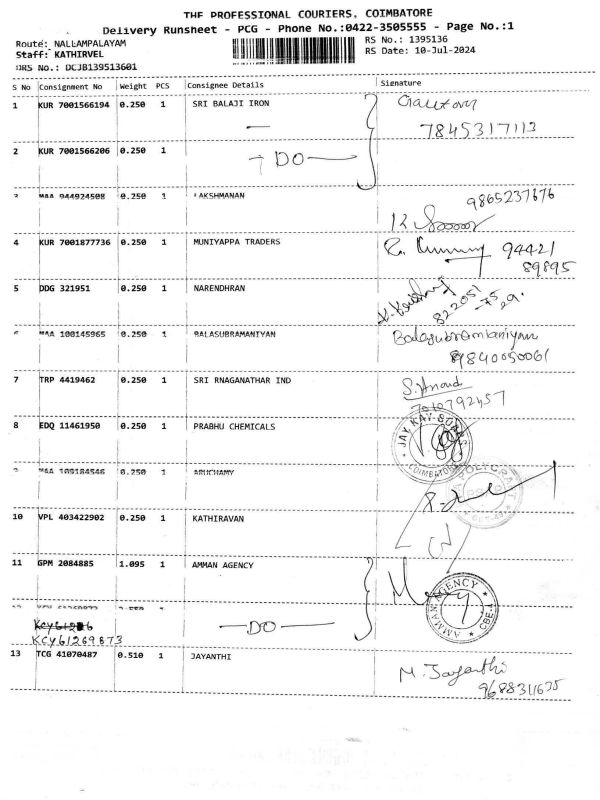 THE PROFESSIONAL COURIERS, COIMBATORE
Delivery Runsheet - PCG - Phone No.:0422-3505555 - Page No.:1
Route: NALLAMPALAYAM
RS No.: 1395136
Staff: KATHIRVEL
RS Date: 10-Jul-2024
DRS No.: DCJB139513601
S No Consignment No Weight PCS Consignee Details Signature
1 KUR 7001566194 0.250 1 SRI BALAJI IRON
Gautam
7845317113
2 KUR 7001566206 0.250 1 - DO -
3 MAA 944924508 0.250 1 LAKSHMANAN
9865237676
4 KUR 7001877736 0.250 1 MUNIYAPPA TRADERS
94421
89895
5 DDG 321951 0.250 1 NARENDHRAN
822051
6 MAA 100145965 0.250 1 BALASUBRAMANIYAN
Balasubramaniyan
9840050061
7 TRP 4419462 0.250 1 SRI RNAGANATHAR IND
S. Anand
8 EDQ 11461950 0.250 1 PRABHU CHEMICALS
JAY KAY
COIMBATORE
9 MAA 109184546 0.250 1 ARUCHAMY
10 VPL 403422902 0.250 1 KATHIRAVAN
11 GPM 2084885 1.095 1 AMMAN AGENCY
AMMAN AGENCY
CBE
12
- DO -
KCY61269873
13 TCG 41070487 0.510 1 JAYANTHI
M. Jayanthi